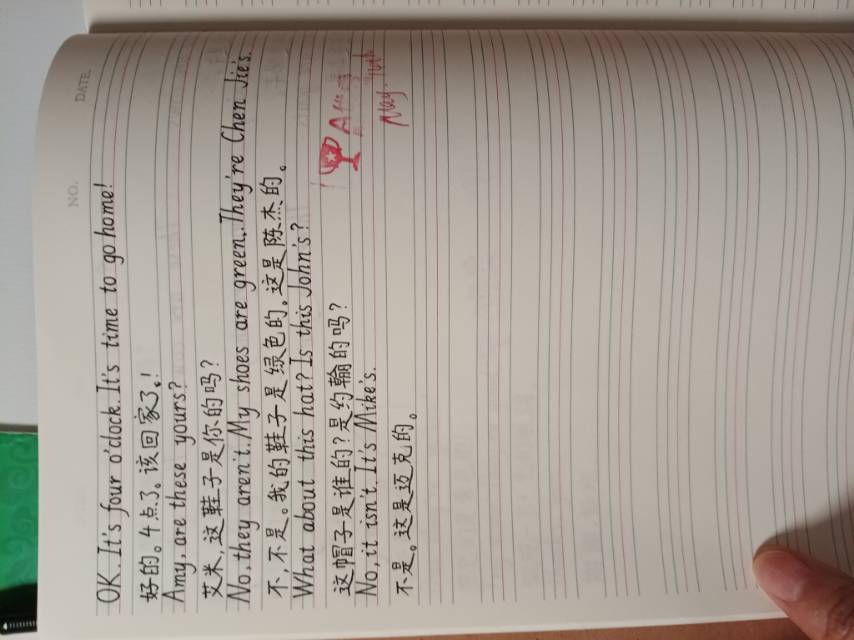 NO.
DATE
OK. It's four o'clock. It's time to go home!
好的。4点了。该回家了!
Amy, are these yours?
艾米,这鞋子是你的吗?
No, they aren't. My shoes are green. They're Chen Jie's.
不,不是。我的鞋子是绿色的。这是陈杰的。
What about this hat? Is this John's?
这帽子是谁的?是约翰的吗?
No, it isn't. It's Mike's.
不是。这是迈克的。
May.